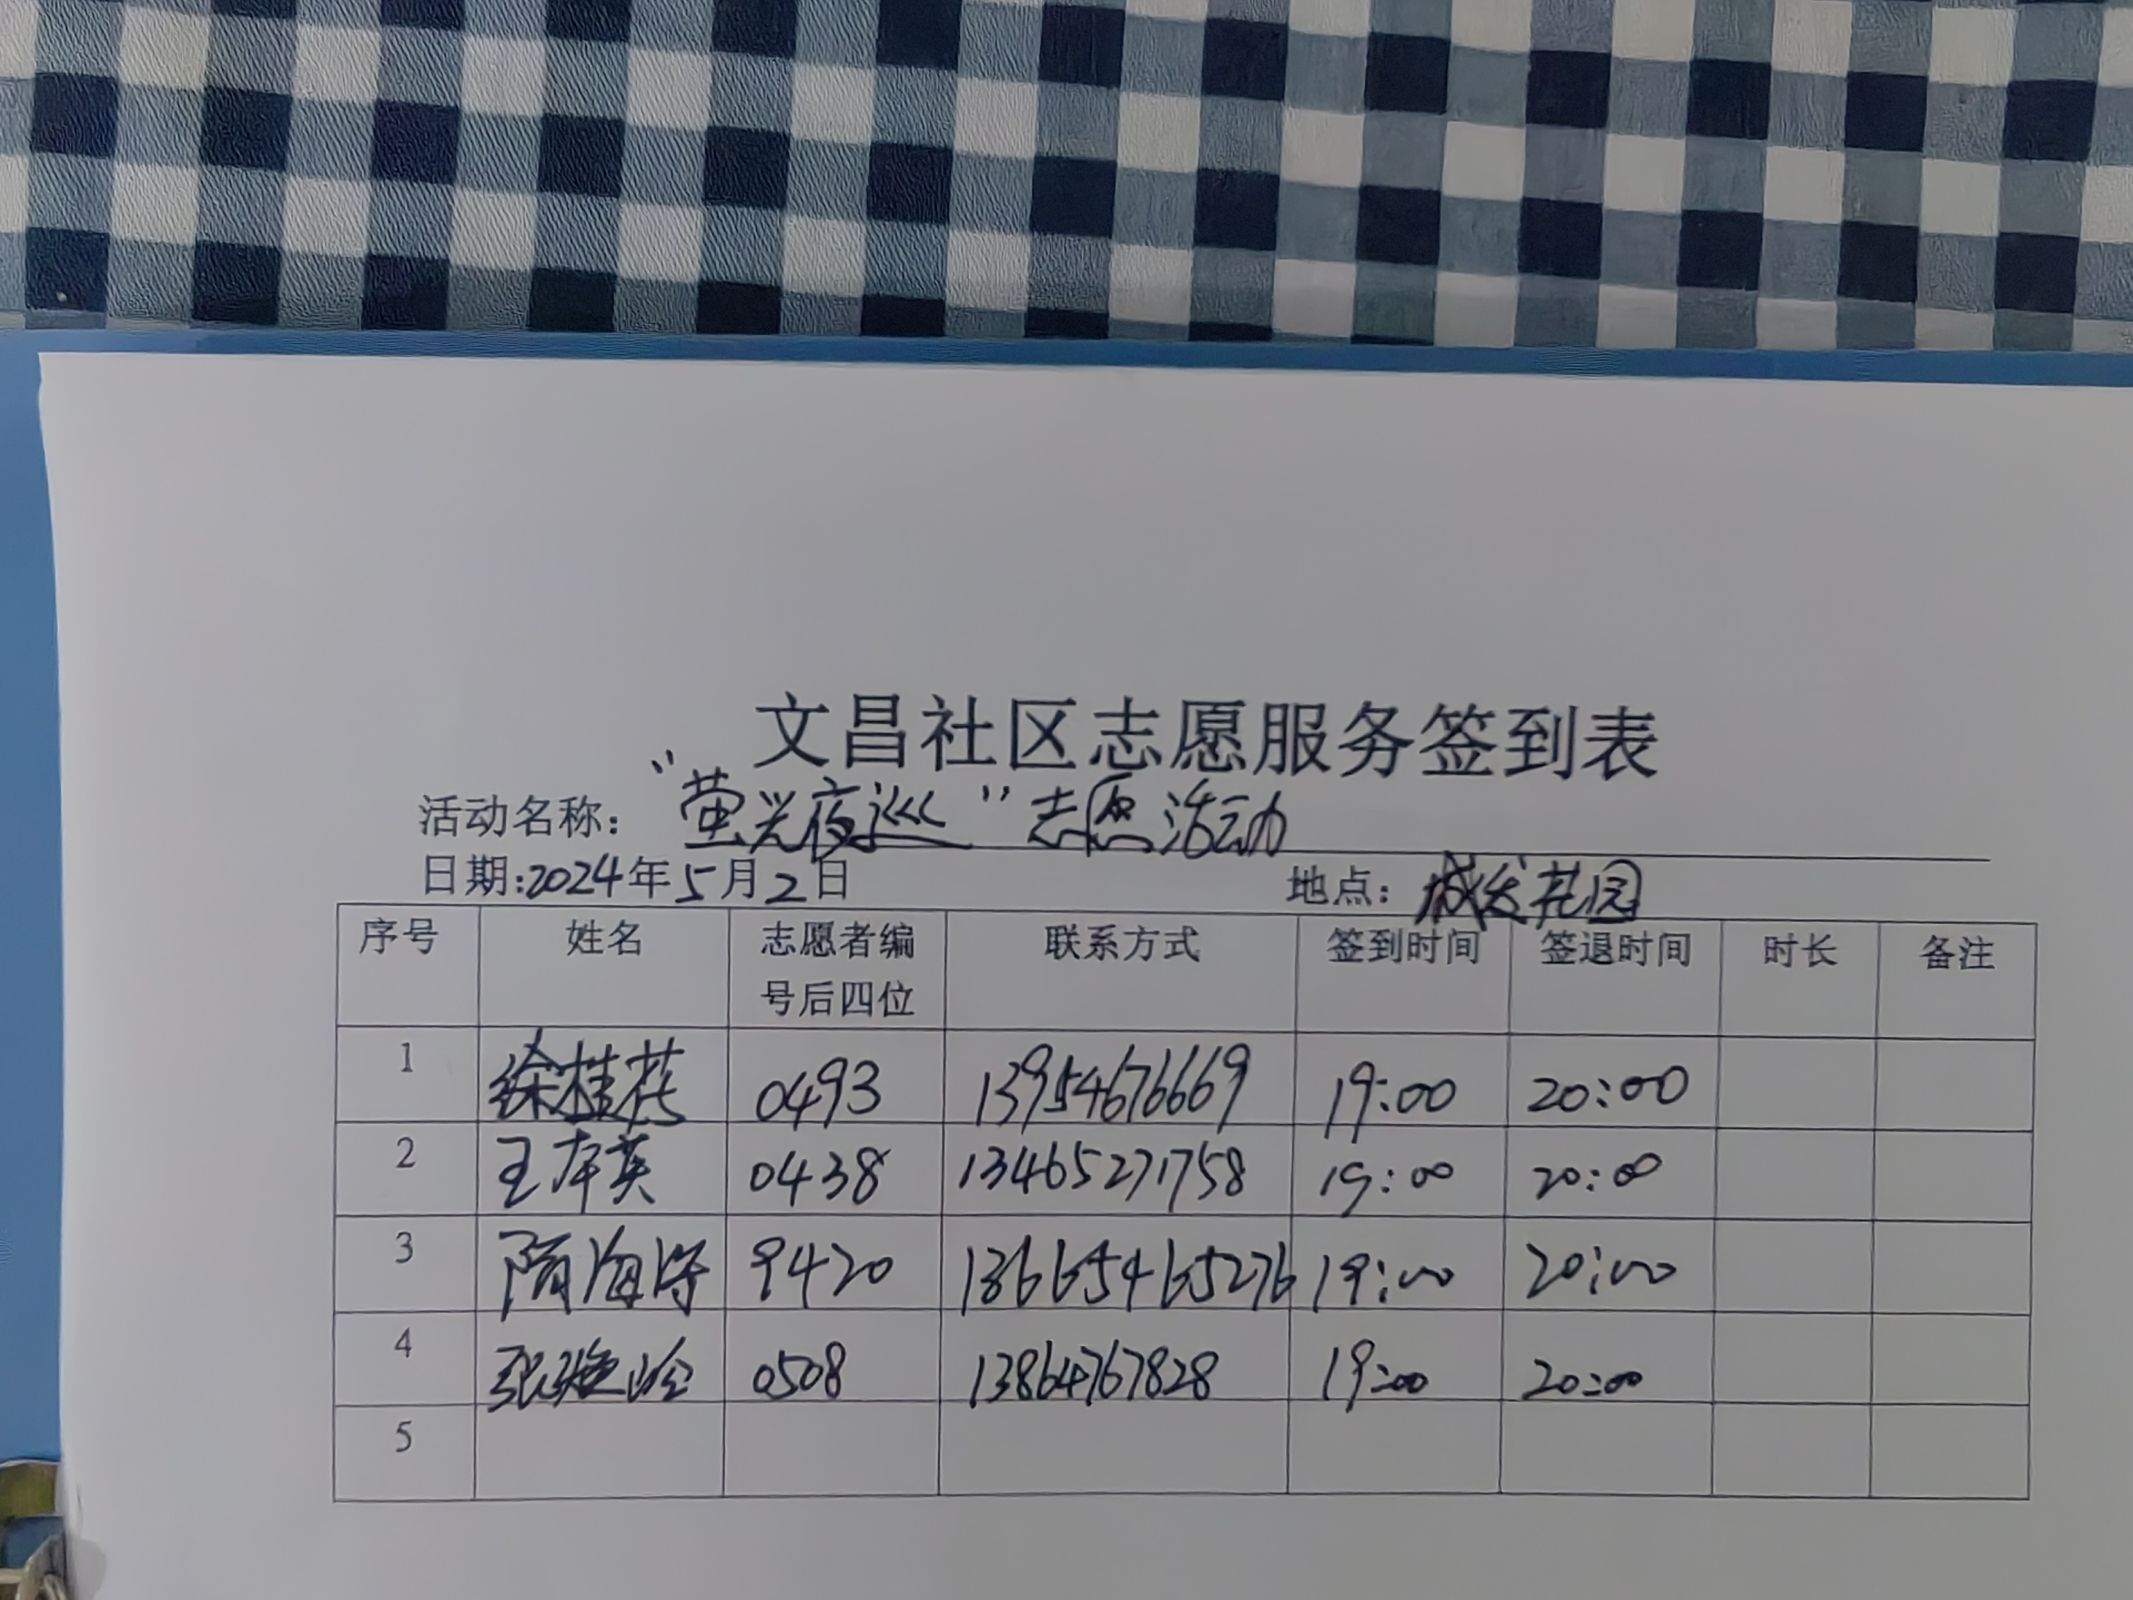 文昌社区志愿服务签到表
活动名称：“萤光夜巡”志愿活动
日期:2024年5月2日 地点：城发花园
序号 姓名 志愿者编号后四位 联系方式 签到时间 签退时间 时长 备注
1 徐桂花 0493 13954676669 19:00 20:00
2 王本英 0438 13465271758 19:00 20:00
3 隋海 9420 13665465276 19:00 20:00
4 张 0508 13864767828 19:00 20:00
5